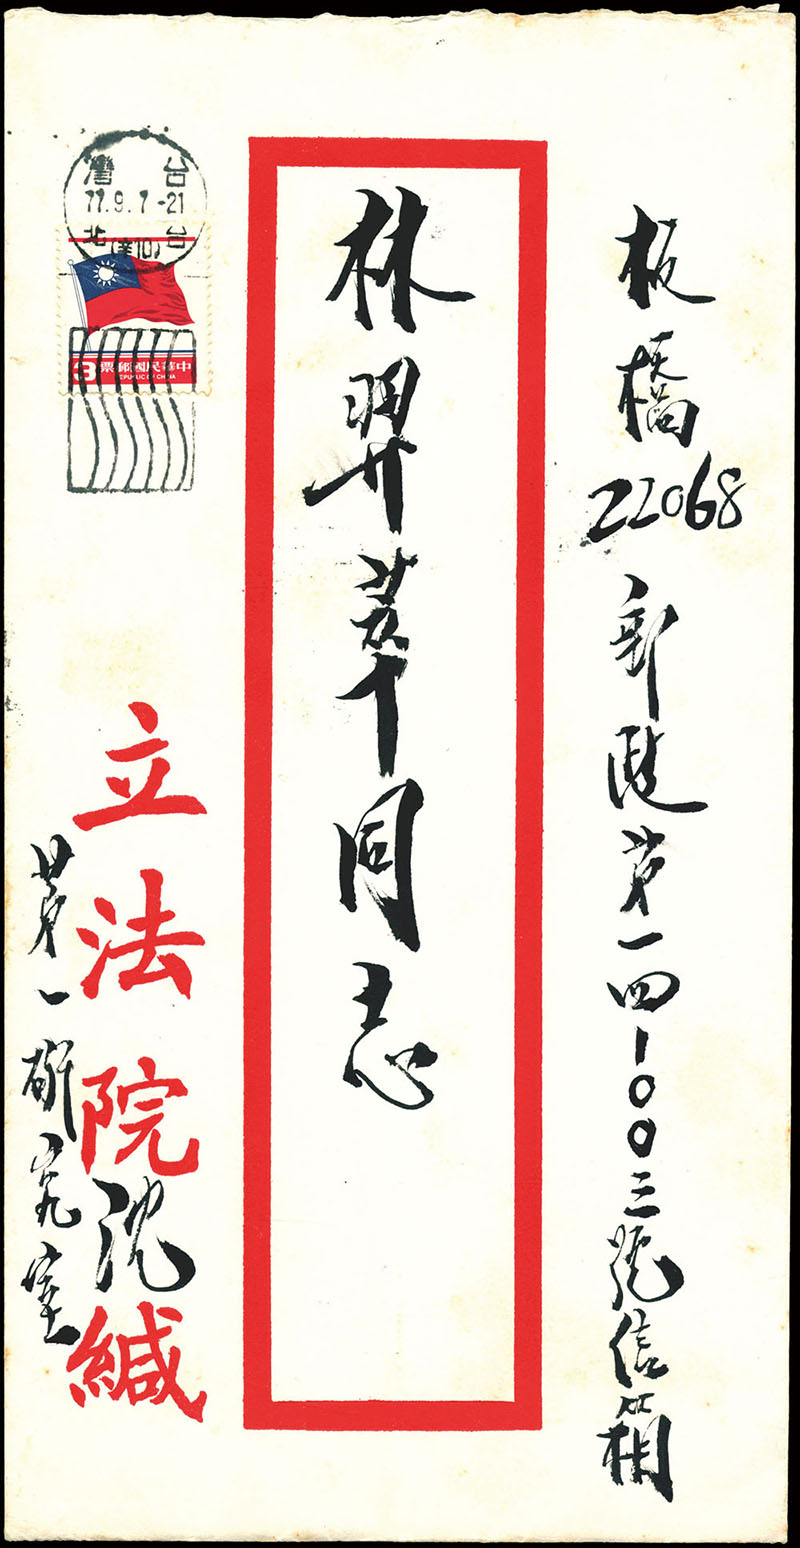 板橋22068郵政第一四-一〇〇三號信箱
林羿萃同志
立法院沈緘
第一研究室
台灣
77.9.7-21
台北
中華民國郵票
REPUBLIC OF CHINA
3